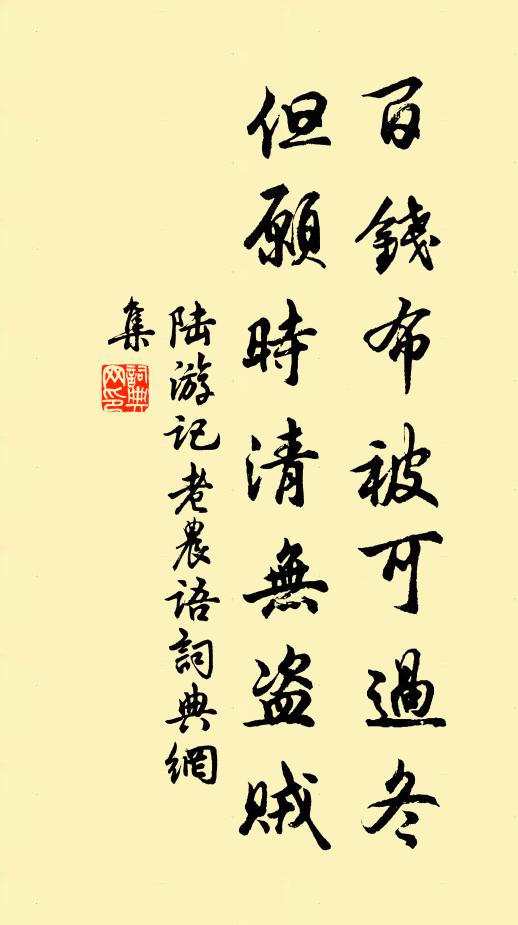 百錢布被可過冬
但願時清無盗賊
陸游記老農語詞典網
集
詞典
网印